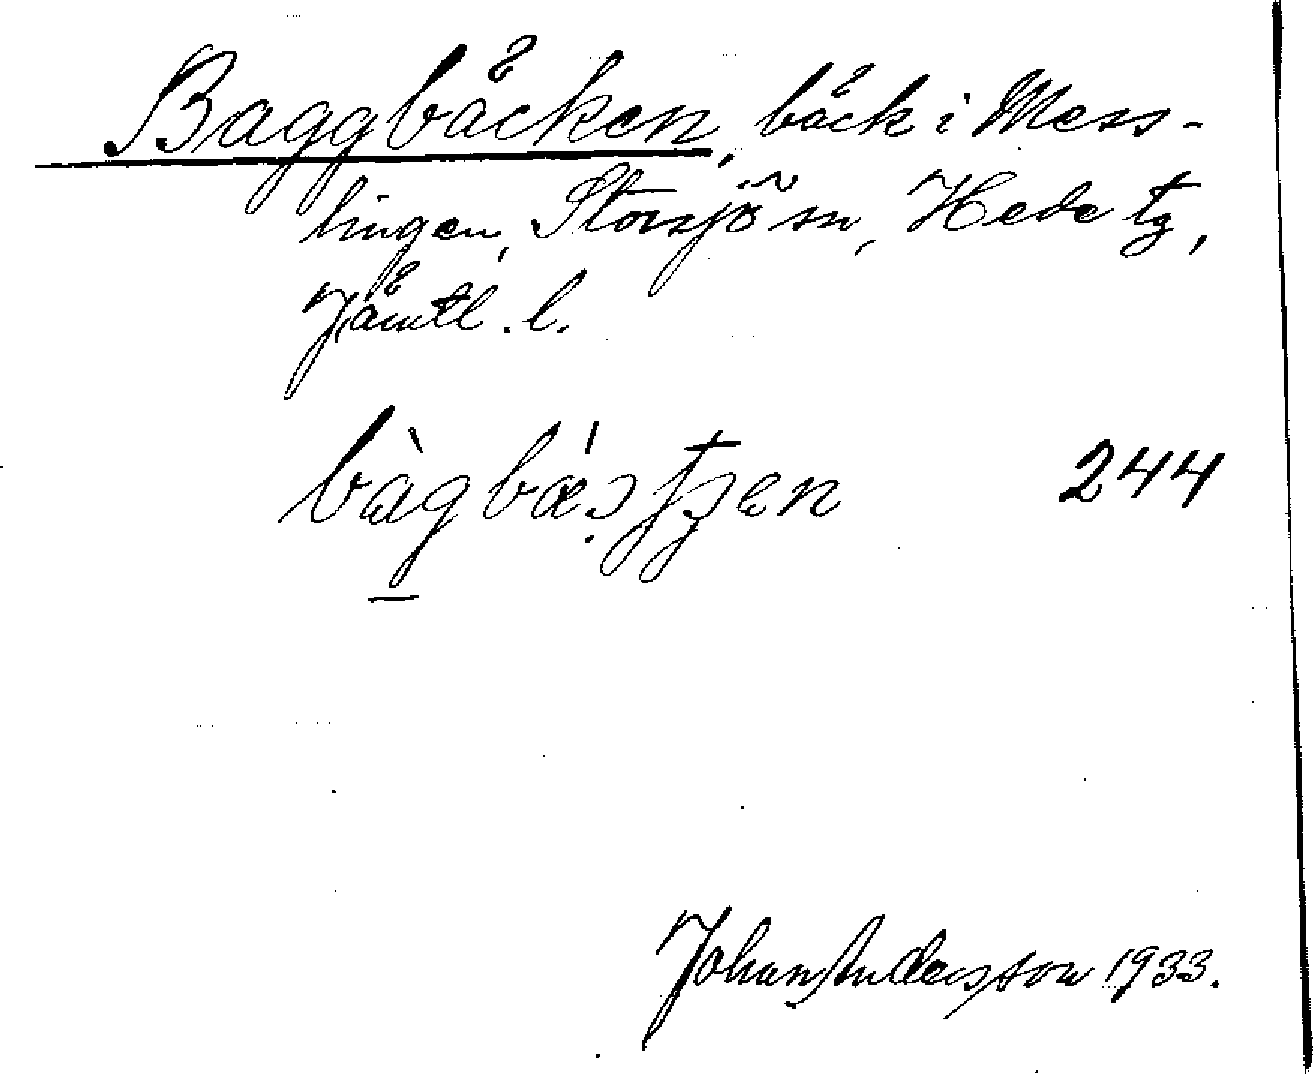 Baggbäcken, bäck i Mess-
lingen, Storsjö sn, Hede tg,
Jämtl. l.
244
Johan Andersson 1933.